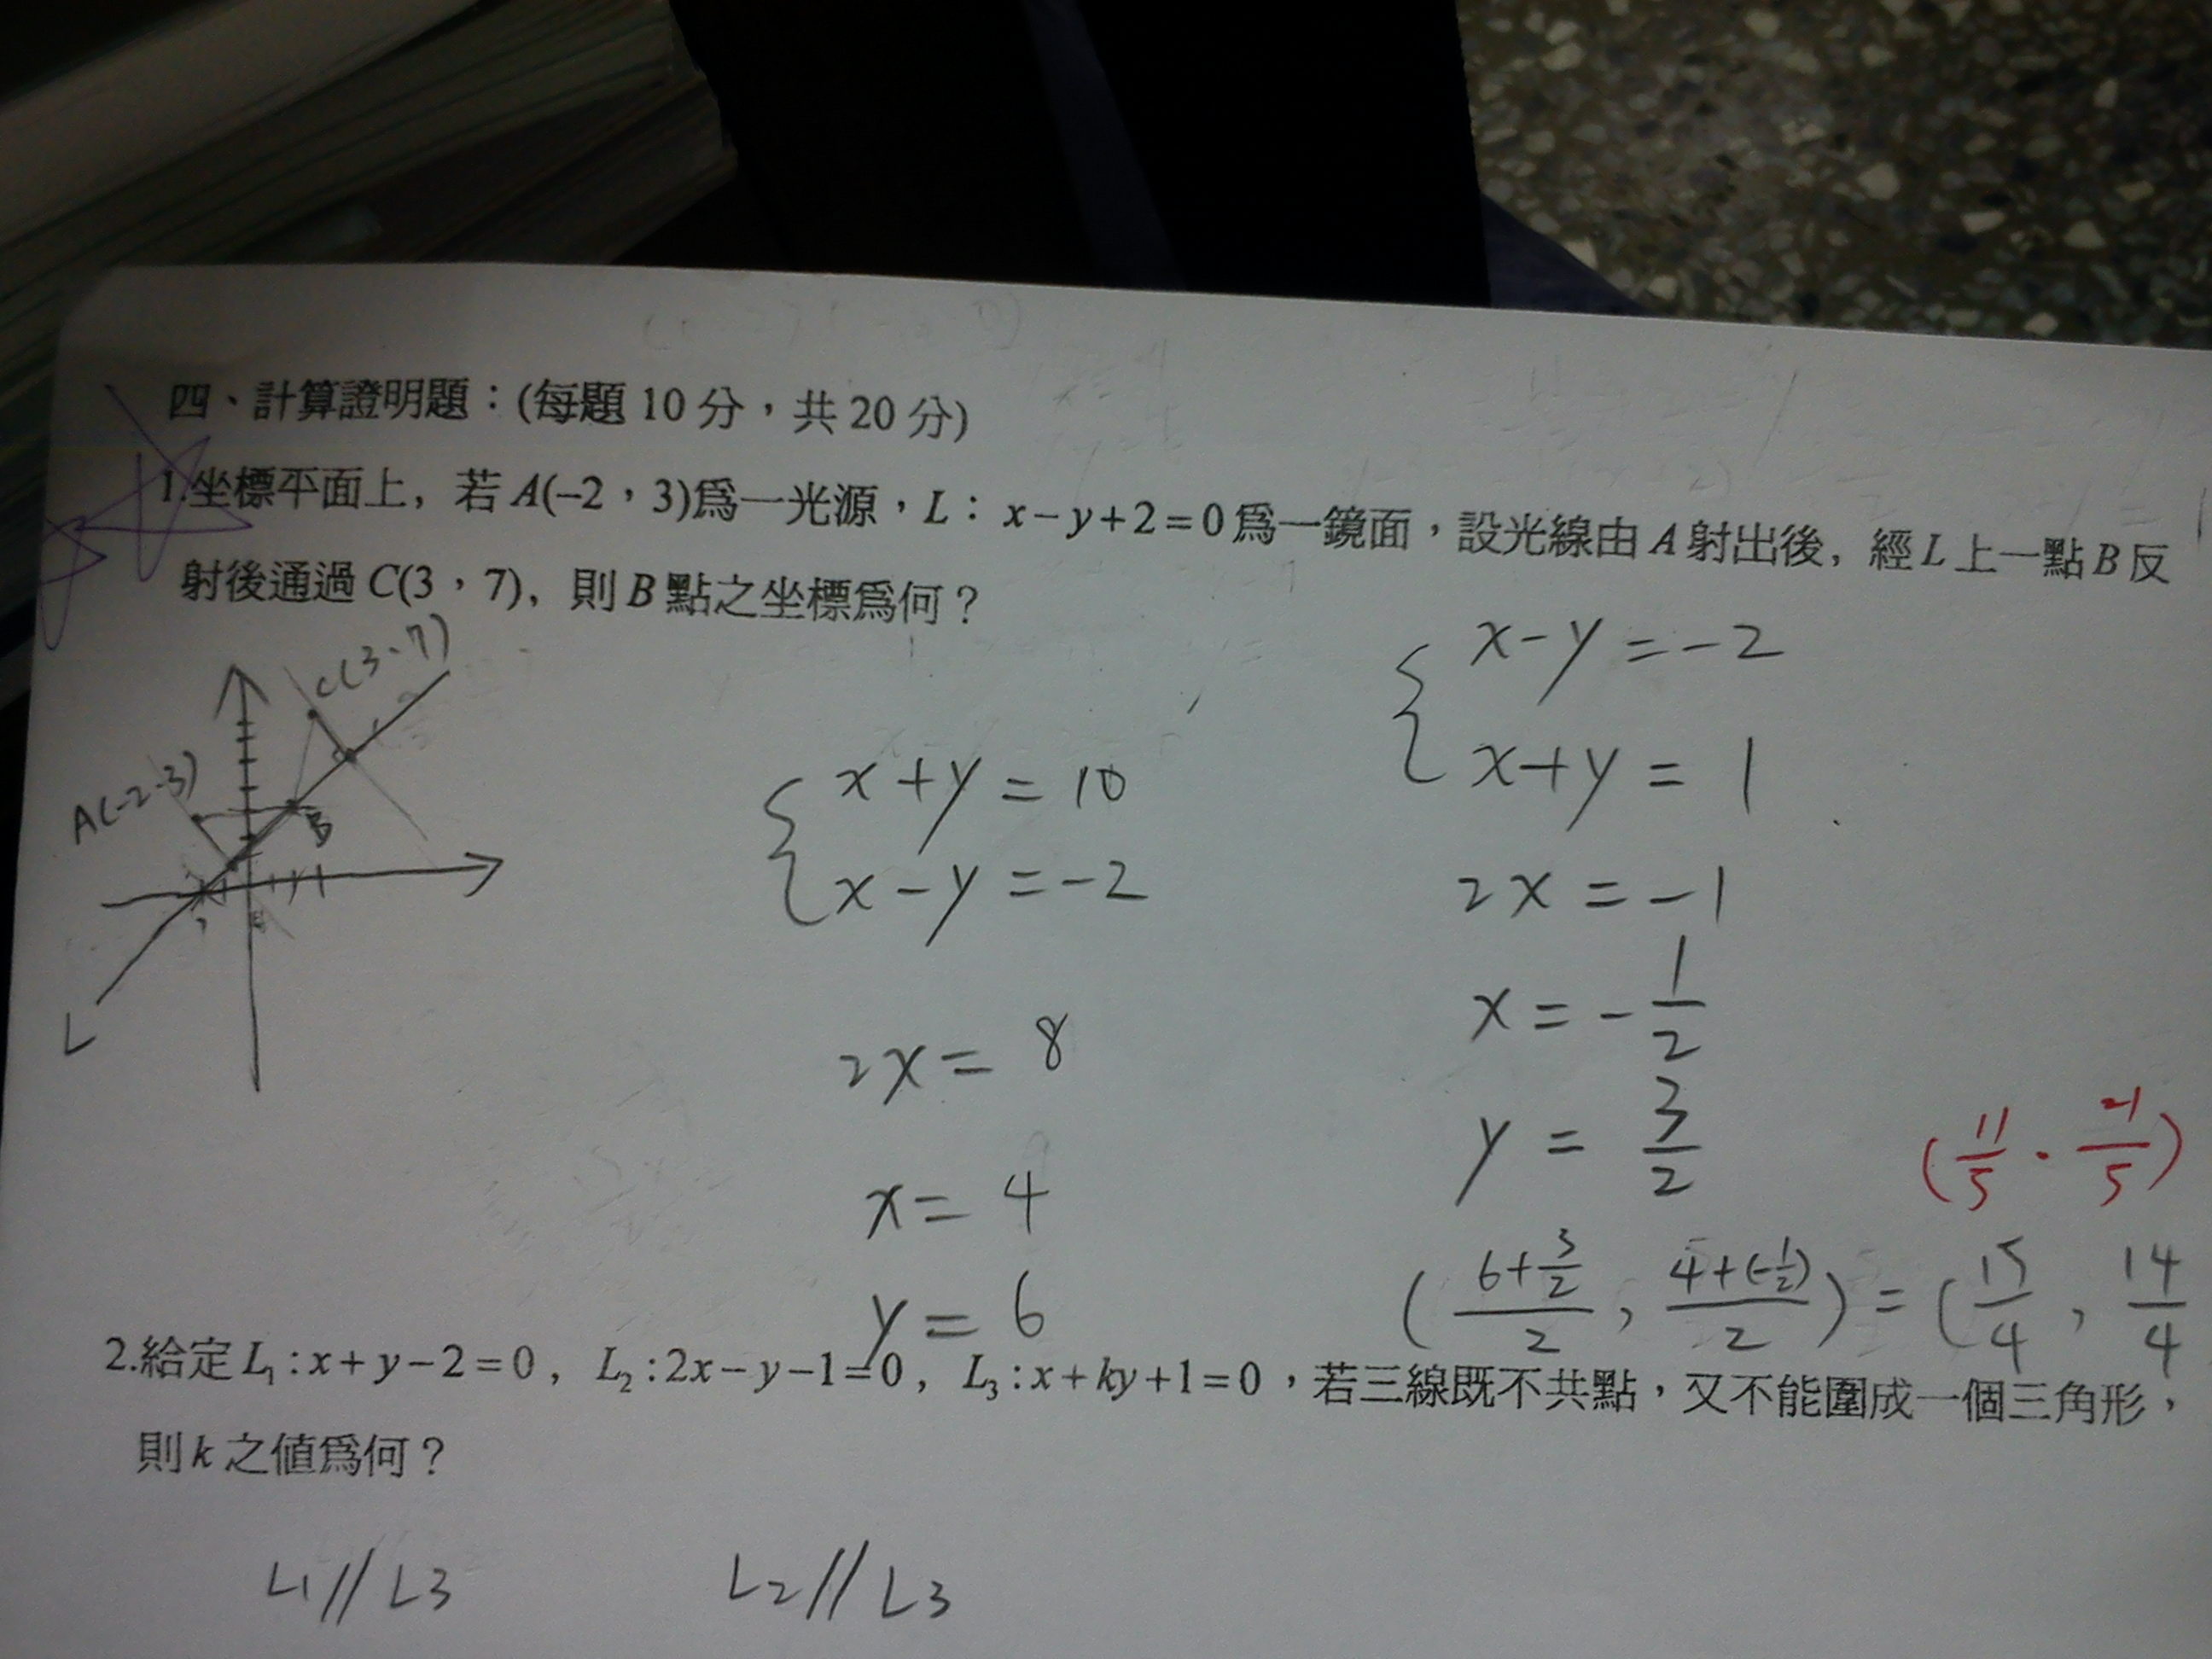 四、計算證明題：(每題 10 分，共 20 分)
1.坐標平面上，若 A(–2，3)爲一光源，L：x–y+2=0爲一鏡面，設光線由 A 射出後，經 L 上一點 B 反
射後通過 C(3，7)，則 B 點之坐標爲何？
C(3、7)
A(-2、3)
B
L
x+y=10
x-y=-2
2x=8
x=4
y=6
x-y=-2
x+y=1
2x=-1
x=-1/2
y=3/2
(11/5、21/5)
(6+3/2 / 2, 4+(-1/2) / 2)=(15/4, 14/4
2.給定 L₁:x+y–2=0，L₂:2x–y–1=0，L₃:x+ky+1=0，若三線既不共點，又不能圍成一個三角形，
則 k 之值爲何？
L1//L3 L2//L3